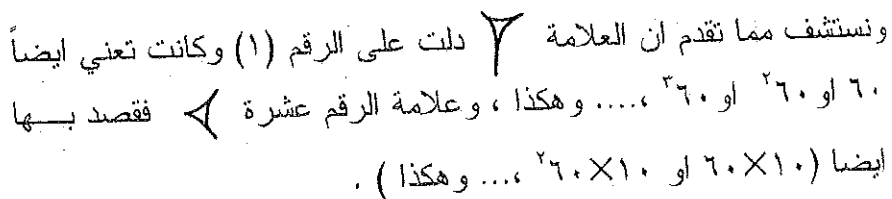 ونستشف مما تقدم ان العلامة 𒁹 دلت على الرقم (١) وكانت تعني ايضاً
٦٠ او ٦٠² او ٦٠³ ،.... وهكذا ، وعلامة الرقم عشرة 𒌋 فقصد بـــها
ايضا (١٠×٦٠ او ١٠×٦٠² ،... وهكذا ) .